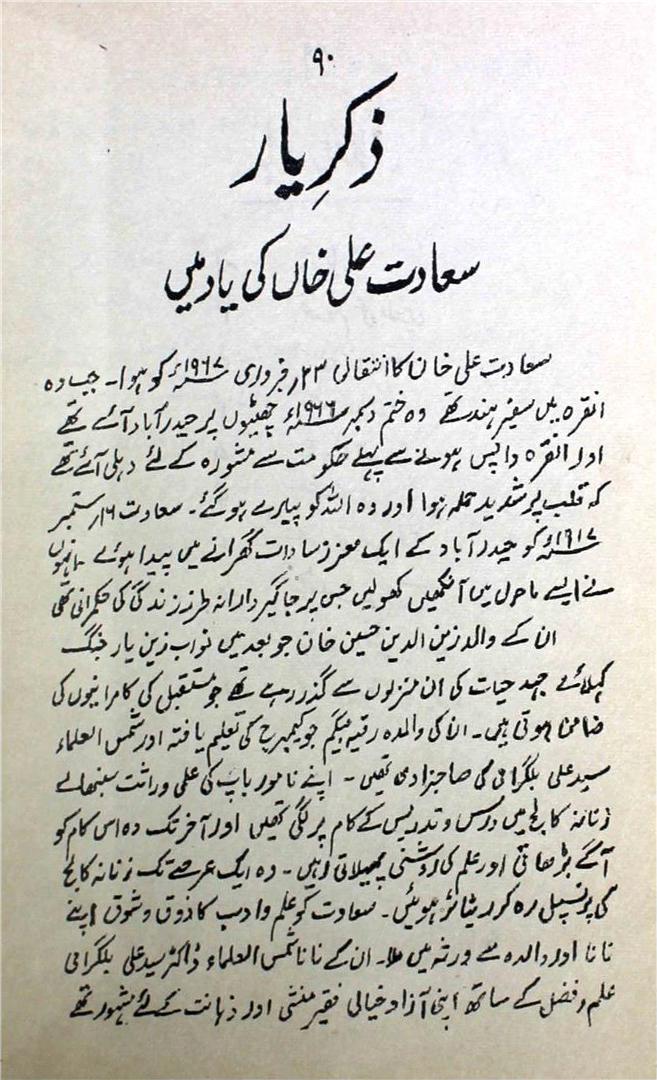 ۹۰
ذکرِ یار
سعادت علی خاں کی یاد میں
سعادت علی خان کا انتقال ۲۳؍ فروری ۱۹۶۷ء کو ہوا۔ جب وہ
انقرہ میں سفیر ہند تھے وہ ختم دسمبر ۱۹۶۶ء چھٹیوں پر حیدرآباد آئے تھے
اور انقرہ واپس ہونے سے پہلے حکومت سے مشورہ کے لئے دہلی آئے تھے
کہ قلب پر شدید حملہ ہوا اور وہ اللہ کو پیارے ہوگئے۔ سعادت ۱۶؍ ستمبر
۱۹۱۷ء کو حیدرآباد کے ایک معزز سادات گھرانے میں پیدا ہوئے۔ انہوں
نے ایسے ماحول میں آنکھیں کھولیں جس پر جاگیردارانہ طرز زندگی کی حکمرانی تھی
ان کے والد زین الدین حسین خان جو بعد میں نواب زین یار جنگ
کہلائے جہد حیات کی ان منزلوں سے گذر رہے تھے جو مستقبل کی کامرانیوں کی
ضامن ہوتی ہیں۔ ان کی والدہ رقیہ بیگم جو کیمبرج کی تعلیم یافتہ اور شمس العلماء
سید علی بلگرامی کی صاحبزادی تھیں۔ اپنے نامور باپ کی علمی وراثت سنبھالے
زنانہ کالج میں درس و تدریس کے کام پر لگی تھیں اور آخر تک وہ اس کام کو
آگے بڑھاتی اور علم کی روشنی پھیلاتی رہیں۔ وہ ایک عرصے تک زنانہ کالج
کی پرنسپل رہ کر ریٹائر ہوئیں۔ سعادت کو علم و ادب کا ذوق و شوق اپنے
نانا اور والدہ سے ورثہ میں ملا۔ ان کے نانا شمس العلماء ڈاکٹر سید علی بلگرامی
علم و فضل کے ساتھ اپنی آزاد خیالی فقیر منشی اور ذہانت کے لئے مشہور تھے